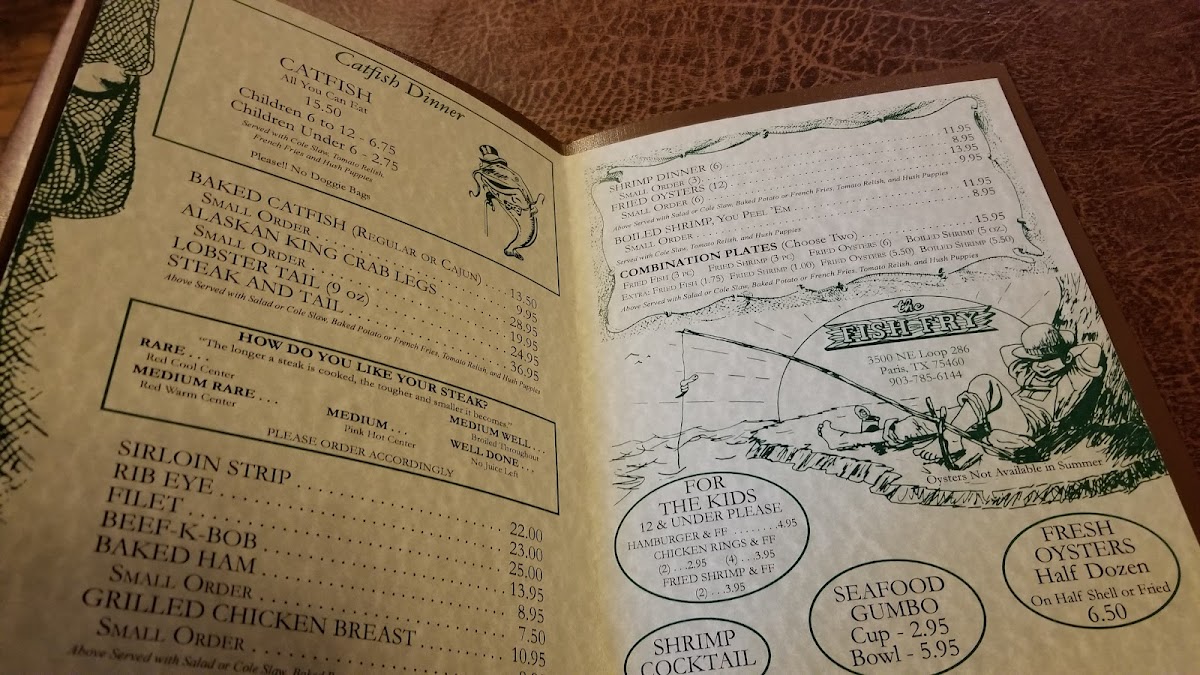 Catfish Dinner
CATFISH
All You Can Eat
15.50
Children 6 to 12 - 6.75
Children Under 6 - 2.75
Served with Cole Slaw, Tomato Relish,
French Fries and Hush Puppies
Please!! No Doggie Bags
BAKED CATFISH (Regular or Cajun) . . . 13.50
Small Order . . . 9.95
ALASKAN KING CRAB LEGS . . . 28.95
Small Order . . . 19.95
LOBSTER TAIL (9 oz) . . . 24.95
STEAK AND TAIL . . . 36.95
Above Served with Salad or Cole Slaw, Baked Potato or French Fries, Tomato Relish, and Hush Puppies
HOW DO YOU LIKE YOUR STEAK?
"The longer a steak is cooked, the tougher and smaller it becomes."
RARE . . .
Red Cool Center
MEDIUM RARE . . .
Red Warm Center
MEDIUM . . .
Pink Hot Center
MEDIUM WELL . . .
Broiled Throughout
WELL DONE . . .
No Juice Left
PLEASE ORDER ACCORDINGLY
SIRLOIN STRIP . . . 22.00
RIB EYE . . . 23.00
FILET . . . 25.00
BEEF-K-BOB . . . 13.95
BAKED HAM . . . 8.95
Small Order . . . 7.50
GRILLED CHICKEN BREAST . . . 10.95
Small Order
Above Served with Salad or Cole Slaw, Baked
SHRIMP DINNER (6) . . . 11.95
Small Order (3) . . . 8.95
FRIED OYSTERS (12) . . . 13.95
Small Order (6) . . . 9.95
Above Served with Salad or Cole Slaw, Baked Potato or French Fries, Tomato Relish, and Hush Puppies
BOILED SHRIMP, You Peel 'Em . . . 11.95
Small Order . . . 8.95
Served with Cole Slaw, Tomato Relish, and Hush Puppies
COMBINATION PLATES (Choose Two) . . . 15.95
Fried Fish (3 pc) Fried Shrimp (3 pc) Fried Oysters (6) Boiled Shrimp (5 oz.)
Extra: Fried Fish (1.75) Fried Shrimp (1.00) Fried Oysters (5.50) Boiled Shrimp (5.50)
Above Served with Salad or Cole Slaw, Baked Potato or French Fries, Tomato Relish, and Hush Puppies
the
FISH FRY
3500 NE Loop 286
Paris, TX 75460
903-785-6144
Oysters Not Available in Summer
FOR
THE KIDS
12 & UNDER PLEASE
HAMBURGER & FF . . . 4.95
CHICKEN RINGS & FF
(2) . . . 2.95 (4) . . . 3.95
FRIED SHRIMP & FF
(2) . . . 3.95
SHRIMP
COCKTAIL
SEAFOOD
GUMBO
Cup - 2.95
Bowl - 5.95
FRESH
OYSTERS
Half Dozen
On Half Shell or Fried
6.50